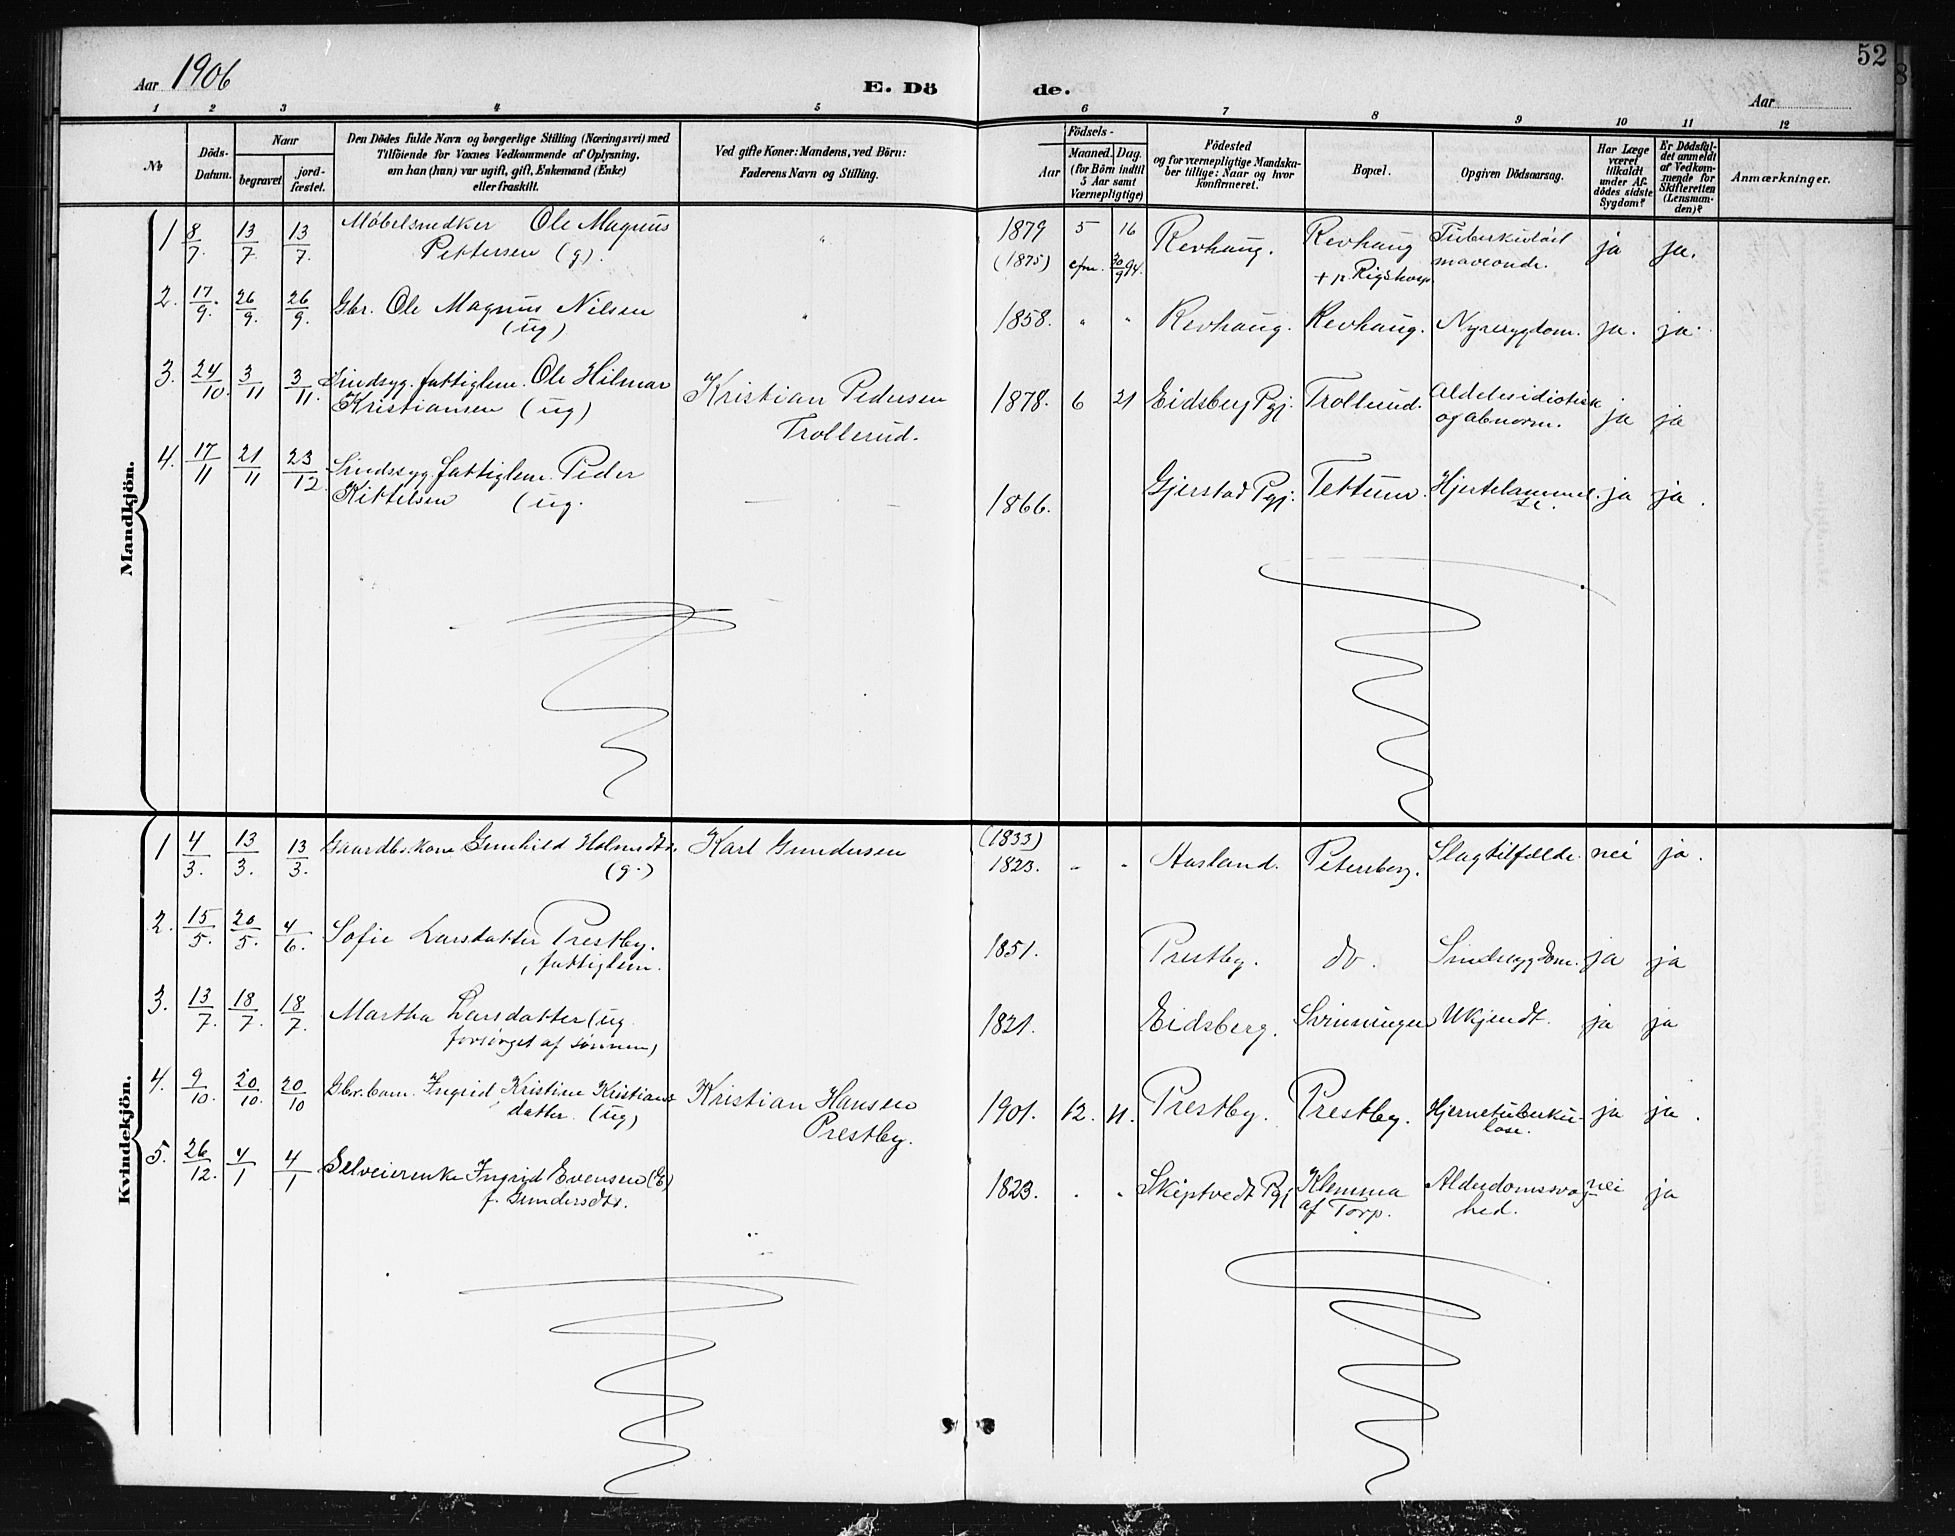 52
Aar 1906
E. Dö
de.
Aar
1 2 3 4 5 6 7 8 9 10 11 12
No
Döds-
Datum.
Naar
begravet
jord-
fæstet.
Den Dödes fulde Navn og borgerlige Stilling (Næringsvei) med
Tilföiende for Voxnes Vedkommende af Oplysning,
om han (hun) var ugift, gift, Enkemand (Enke)
eller fraskilt.
Ved gifte Koner: Mandens, ved Börn:
Faderens Navn og Stilling.
Födsels-
Aar
Maaned. Dag.
(for Börn indtil
5 Aar samt
Værnepligtige)
Födested
og for værnepligtige Mandska-
ber tillige: Naar og hvor
konfirmeret.
Bopæl.
Opgiven Dödsaarsag.
Har Læge
været
tilkaldt
under Af-
dödes sidste
Sygdom?
Er Dödsfal-
det anmeldt
af Vedkom-
mende for
Skifteretten
(Lensman-
den)?
Anmærkninger.
Mandkjön.
1 8/7. 13/7 13/7. Møbelsnedker Ole Magnus " 1879 5 16 Revhaug. Revhaug Tuberkuløst ja ja.
Pettersen (g). (1875) cfm. 30/9 94. + p. Rigshosp. maveonde.
2. 17/9. 26/9. 26/9. Gbr. Ole Magnus Nilsen " 1858. " " Revhaug. Revhaug. Nyresygdom. ja. ja.
(ug)
3. 24/10. 3/11 3/11. Sindsyg. fattiglem. Ole Hilmar Kristian Pedersen 1878. 6 21 Eidsberg Pgj. Trollerud. Aldeles idiotisk ja ja
Kristiansen (ug) Trollerud. og abnorm.
4. 17/11 21/11 23/12. Sindssyg. fattiglem. Peder 1866. Gjerstad Pgj. Tettum. Hjertelammel- ja ja.
Kittelsen (ug. se.
Kvindekjön.
1 4/3. 13/3. 13/3. Gaardbr. kone Gunhild Holmsdtr. Karl Gundersen (1833) 1823. " " Aasland. Petersborg. Slagtilfælde. nei ja.
(g.)
2. 15/5. 20/5. 4/6. Sofie Larsdatter Prestby. 1851. Prestby. do. Sindssygdom. ja ja
fattiglem.
3. 13/7. 18/7. 18/7. Martha Larsdatter (ug. 1821. Eidsberg. Svenungen Ukjendt. ja ja
forsørget af sønnen)
4. 9/10. 20/10. 20/10 Gbr. barn. Ingrid Kristine Kristians- Kristian Hansen 1901. 12. 11. Prestby. Prestby. Hjernetuberku- ja ja.
datter. (ug) Prestby. lose.
5. 26/12. 4/1 4/1 Selveierenke Ingrid Evensen (E) 1823. " " Skiptvedt Pgj Klemma Alderdomssvag- nei ja
f. Gundersdtr. af Torp. hed.